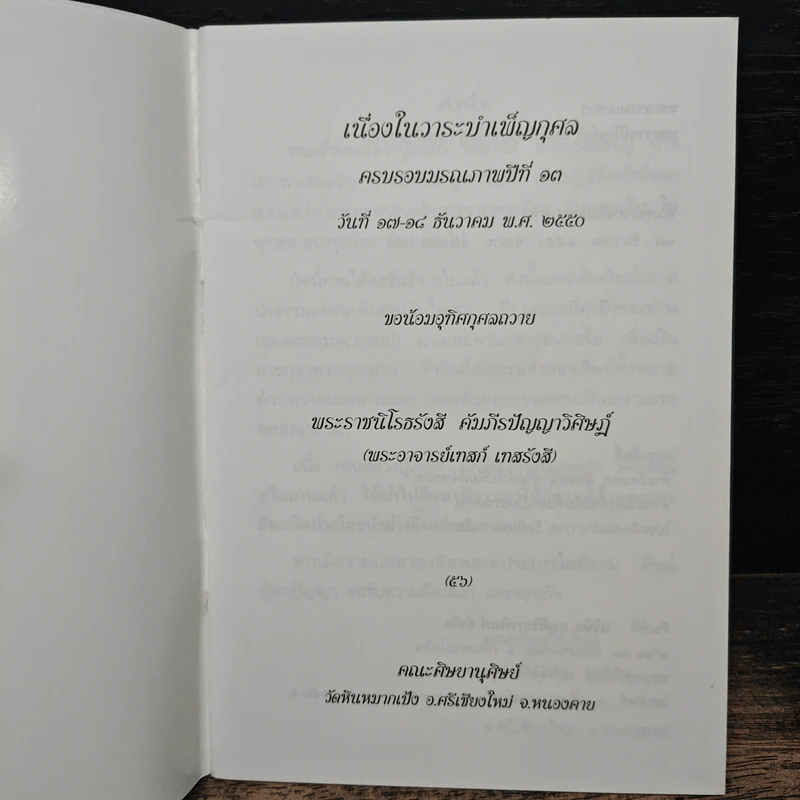 เนื่องในวาระบำเพ็ญกุศล
ครบรอบมรณภาพปีที่ ๑๓
วันที่ ๑๗-๑๘ ธันวาคม พ.ศ. ๒๕๕๐
ขอน้อมอุทิศกุศลถวาย
พระราชนิโรธรังสี คัมภีรปัญญาวิศิษฏ์
(พระอาจารย์เทสก์ เทสรังสี)
(๕๖)
คณะศิษยานุศิษย์
วัดหินหมากเป้ง อ.ศรีเชียงใหม่ จ.หนองคาย